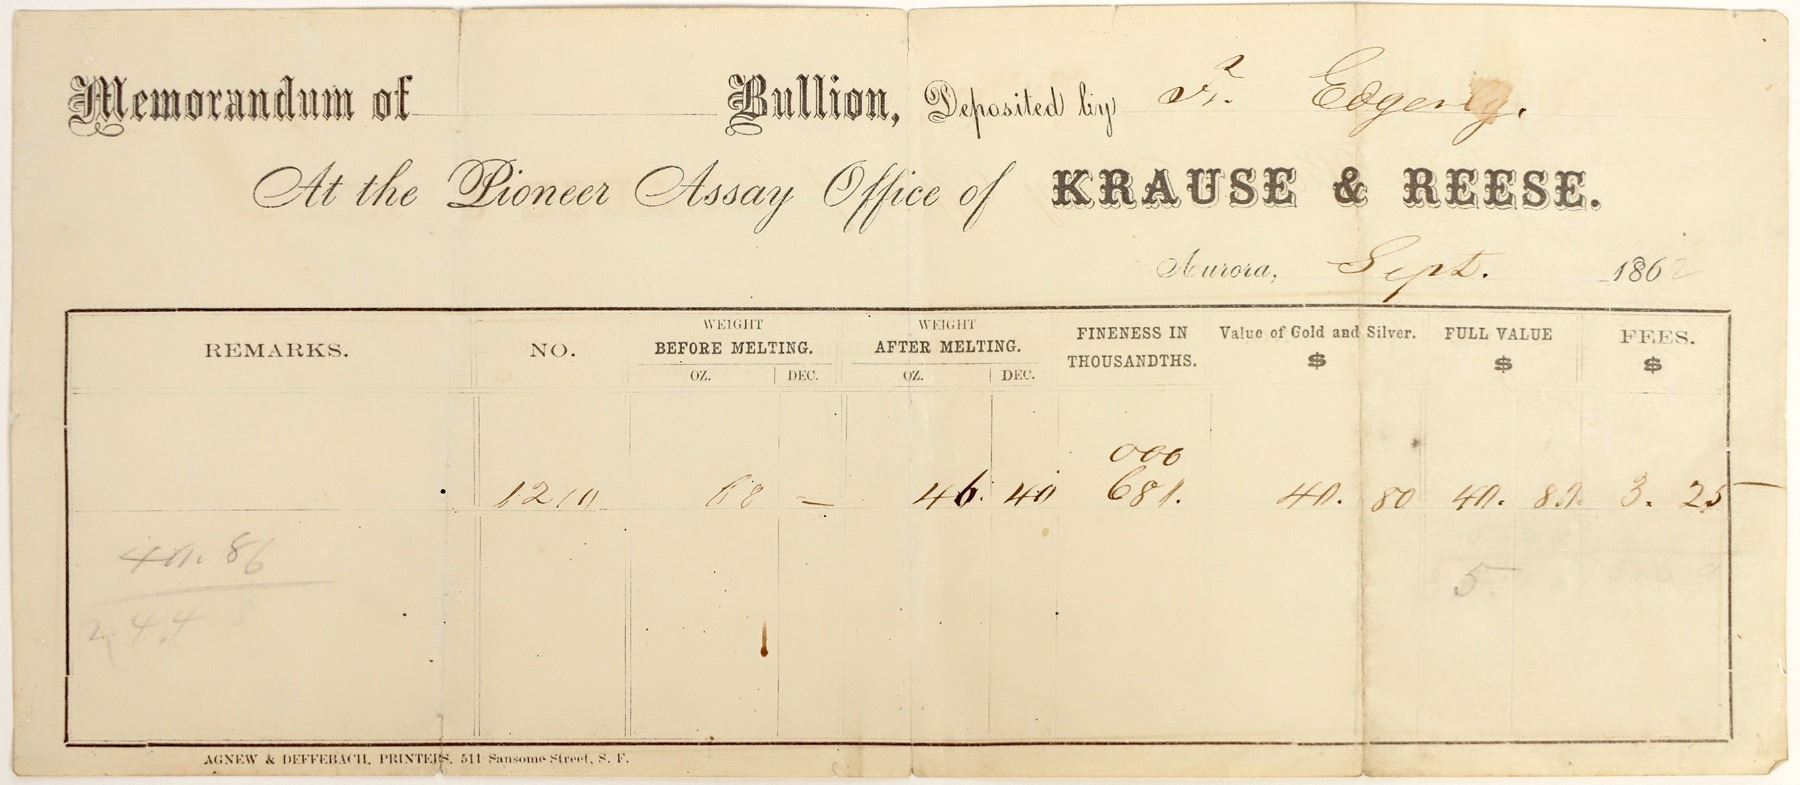 Memorandum of Bullion, Deposited by Fr. Edgerly.
At the Pioneer Assay Office of KRAUSE & REESE.
Aurora, Sept. 1862
REMARKS. NO. WEIGHT BEFORE MELTING. WEIGHT AFTER MELTING. FINENESS IN THOUSANDTHS. Value of Gold and Silver. $ FULL VALUE $ FEES. $
OZ. DEC. OZ. DEC.
000
1210 68 – 46. 40 681. 40. 80 40. 80 3. 25
40. 86
5
2 4.4
AGNEW & DEFFEBACH, PRINTERS, 511 Sansome Street, S. F.